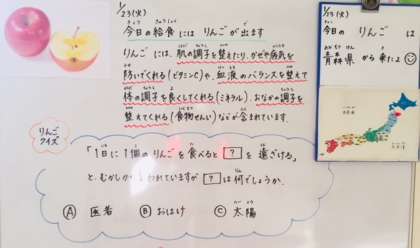 1/23(火)
今日の給食にはりんごが出ます
りんごには、肌の調子を整えたり、かぜや病気を
防いでくれる(ビタミンC)や、血液のバランスを整えて
体の調子を良くしてくれる(ミネラル)、おなかの調子を
整えてくれる(食物せんい)などが含まれています。
りんご
クイズ
「1日に1個のりんごを食べると ? を遠ざける」
と、むかしから いわれていますが ? は何でしょうか。
Ⓐ 医者 Ⓑ おばけ Ⓒ 太陽
今日の りんご は
青森県 から来たよ